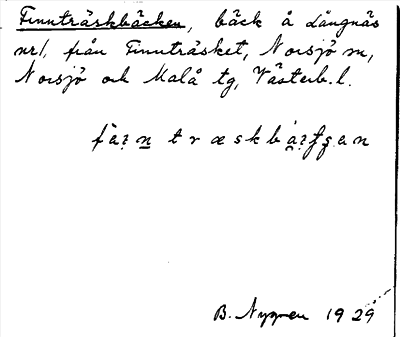 Finnträskbäcken, bäck å Långnäs
nr 1, från Finnträsket, Norsjö sn,
Norsjö och Malå tg, Västerb. l.
B. Nygren 1929